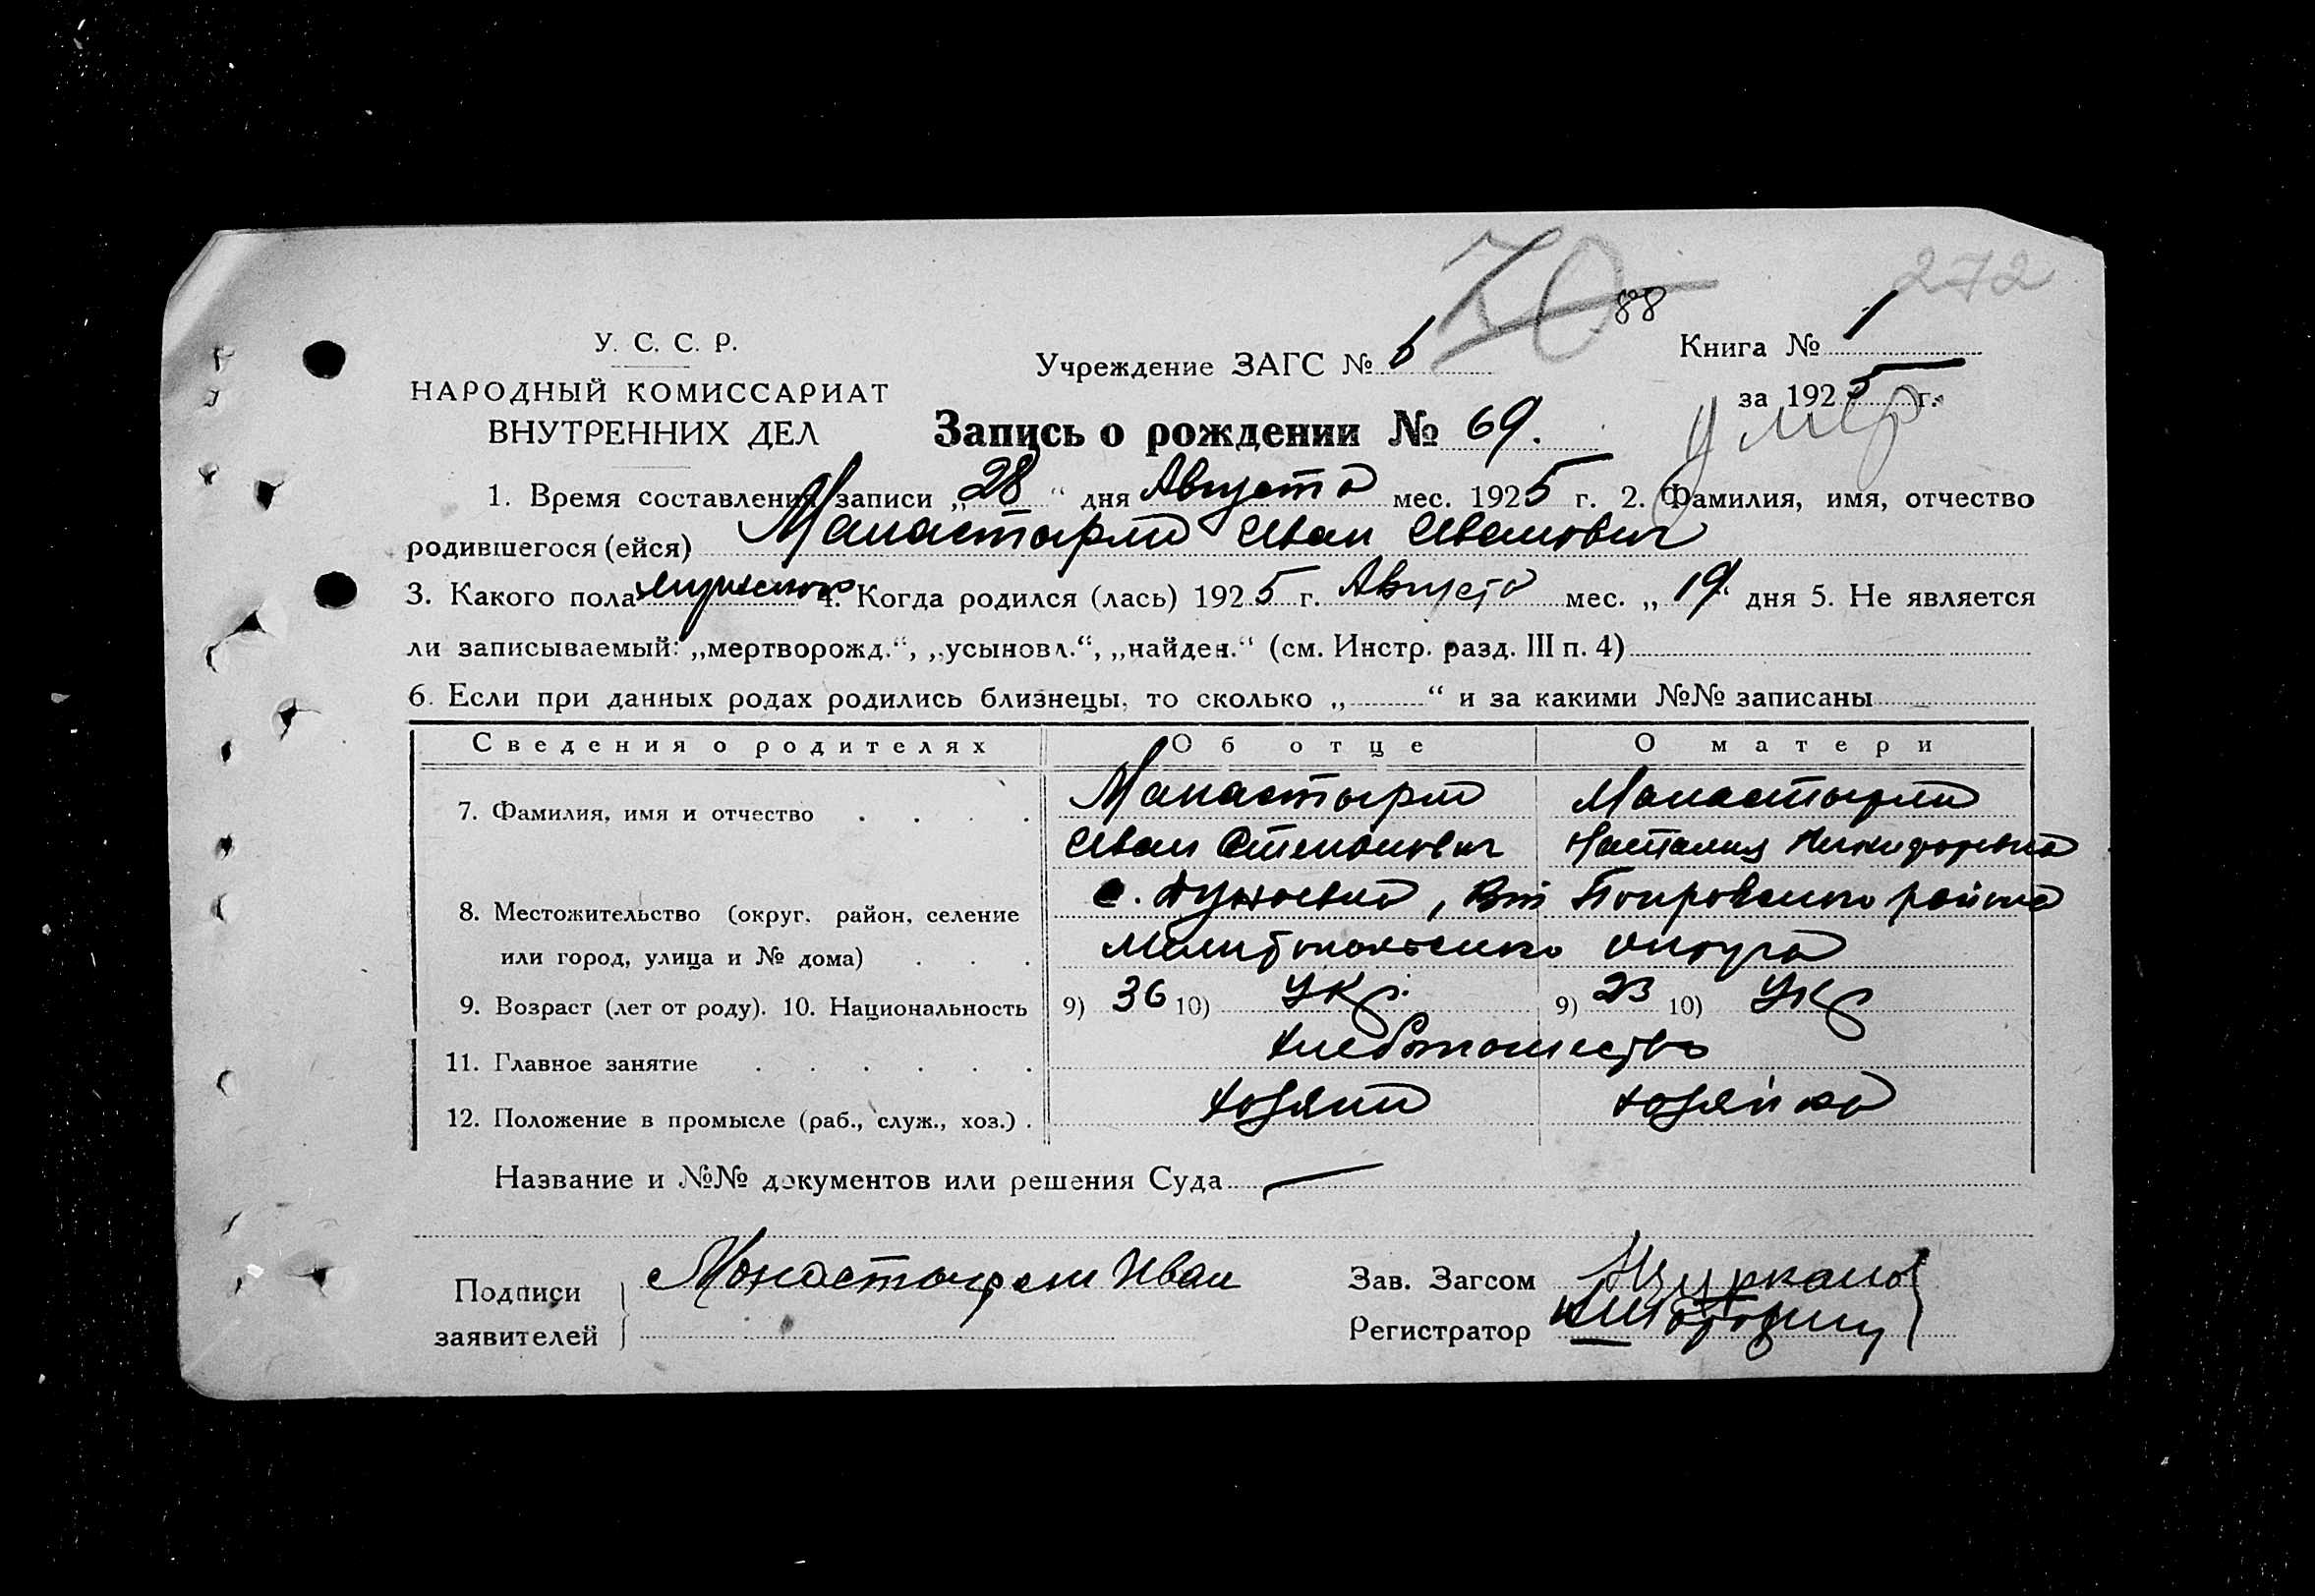 272
70
88
У. С. С. Р.
Учреждение ЗАГС № 6
Книга № 1
НАРОДНЫЙ КОМИССАРИАТ
за 1925 г.
ВНУТРЕННИХ ДЕЛ
Запись о рождении № 69.
умер
1. Время составления записи „28“ дня Августа мес. 1925 г. 2. Фамилия, имя, отчество
родившегося (ейся) Манастырли Иван Иванович
3. Какого пола мужского 4. Когда родился (лась) 1925 г. Августа мес. „19 дня 5. Не является
ли записываемый: „мертворожд.“, „усыновл.“, „найден.“ (см. Инстр. разд. III п. 4)
6. Если при данных родах родились близнецы, то сколько „ “ и за какими №№ записаны
Сведения о родителях Об отце О матери
7. Фамилия, имя и отчество Манастырли Манастырли
Иван Степанович Наталия Никифоровна
8. Местожительство (округ, район, селение с. , Покровского района
или город, улица и № дома) Мелитопольского округа
9. Возраст (лет от роду). 10. Национальность 9) 36 10) Укр. 9) 23 10) Укр
11. Главное занятие хлебопашество
12. Положение в промысле (раб., служ., хоз.) хозяин хозяйка
Название и №№ документов или решения Суда —
Подписи заявителей Монастырли Иван
Зав. Загсом
Регистратор